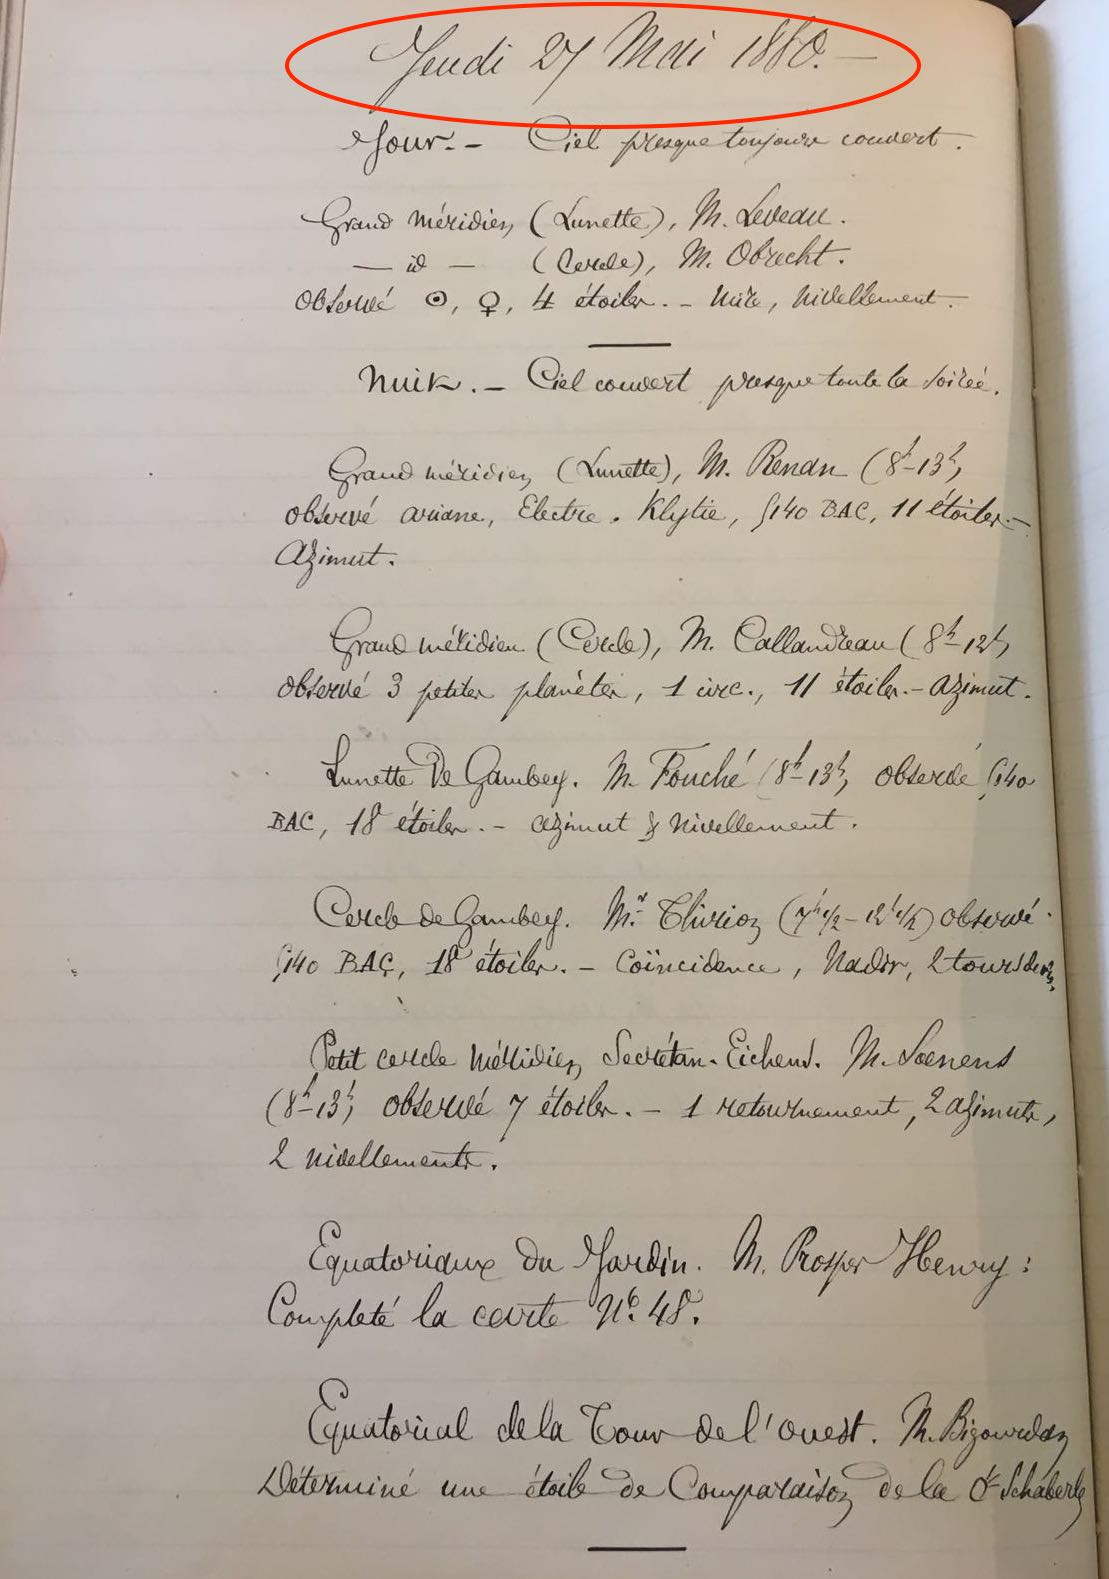 Jeudi 27 Mai 1880. —
Jour. — Ciel presque toujours couvert.
Grand méridien (Lunette), M. Leveau.
— id — (Cercle), M. Obrecht.
observé ☉, ♀, 4 étoiles. — Mire, Nivellement.
Nuit. — Ciel couvert presque toute la soirée.
Grand méridien (Lunette), M. Renan (8h-13h)
observé Ariane, Electre. Klytie, 5140 BAC, 11 étoiles. —
Azimut.
Grand méridien (Cercle), M. Callandreau (8h-12h)
observé 3 petites planètes, 1 circ., 11 étoiles. — Azimut.
Lunette De Gambey. M. Fouché (8h-13h) observé 5140
BAC, 18 étoiles. — azimut & Nivellement.
Cercle de Gambey. Mr Thirion (7h1/2 - 12h1/2) observé
5140 BAC, 18 étoiles. — Coïncidence, Nadir, 2 tours de vis.
Petit cercle Méridien Secrétan-Eichens. M. Loenens
(8h-13h) observé 7 étoiles. — 1 retournement, 2 azimuts,
2 Nivellements.
Equatoriaux du Jardin. M. Prosper Henry:
Completé la carte No. 48.
Equatorial de la Tour de l'ouest. M. Bigourdan
Déterminé une étoile de Comparaison de la Schäberle